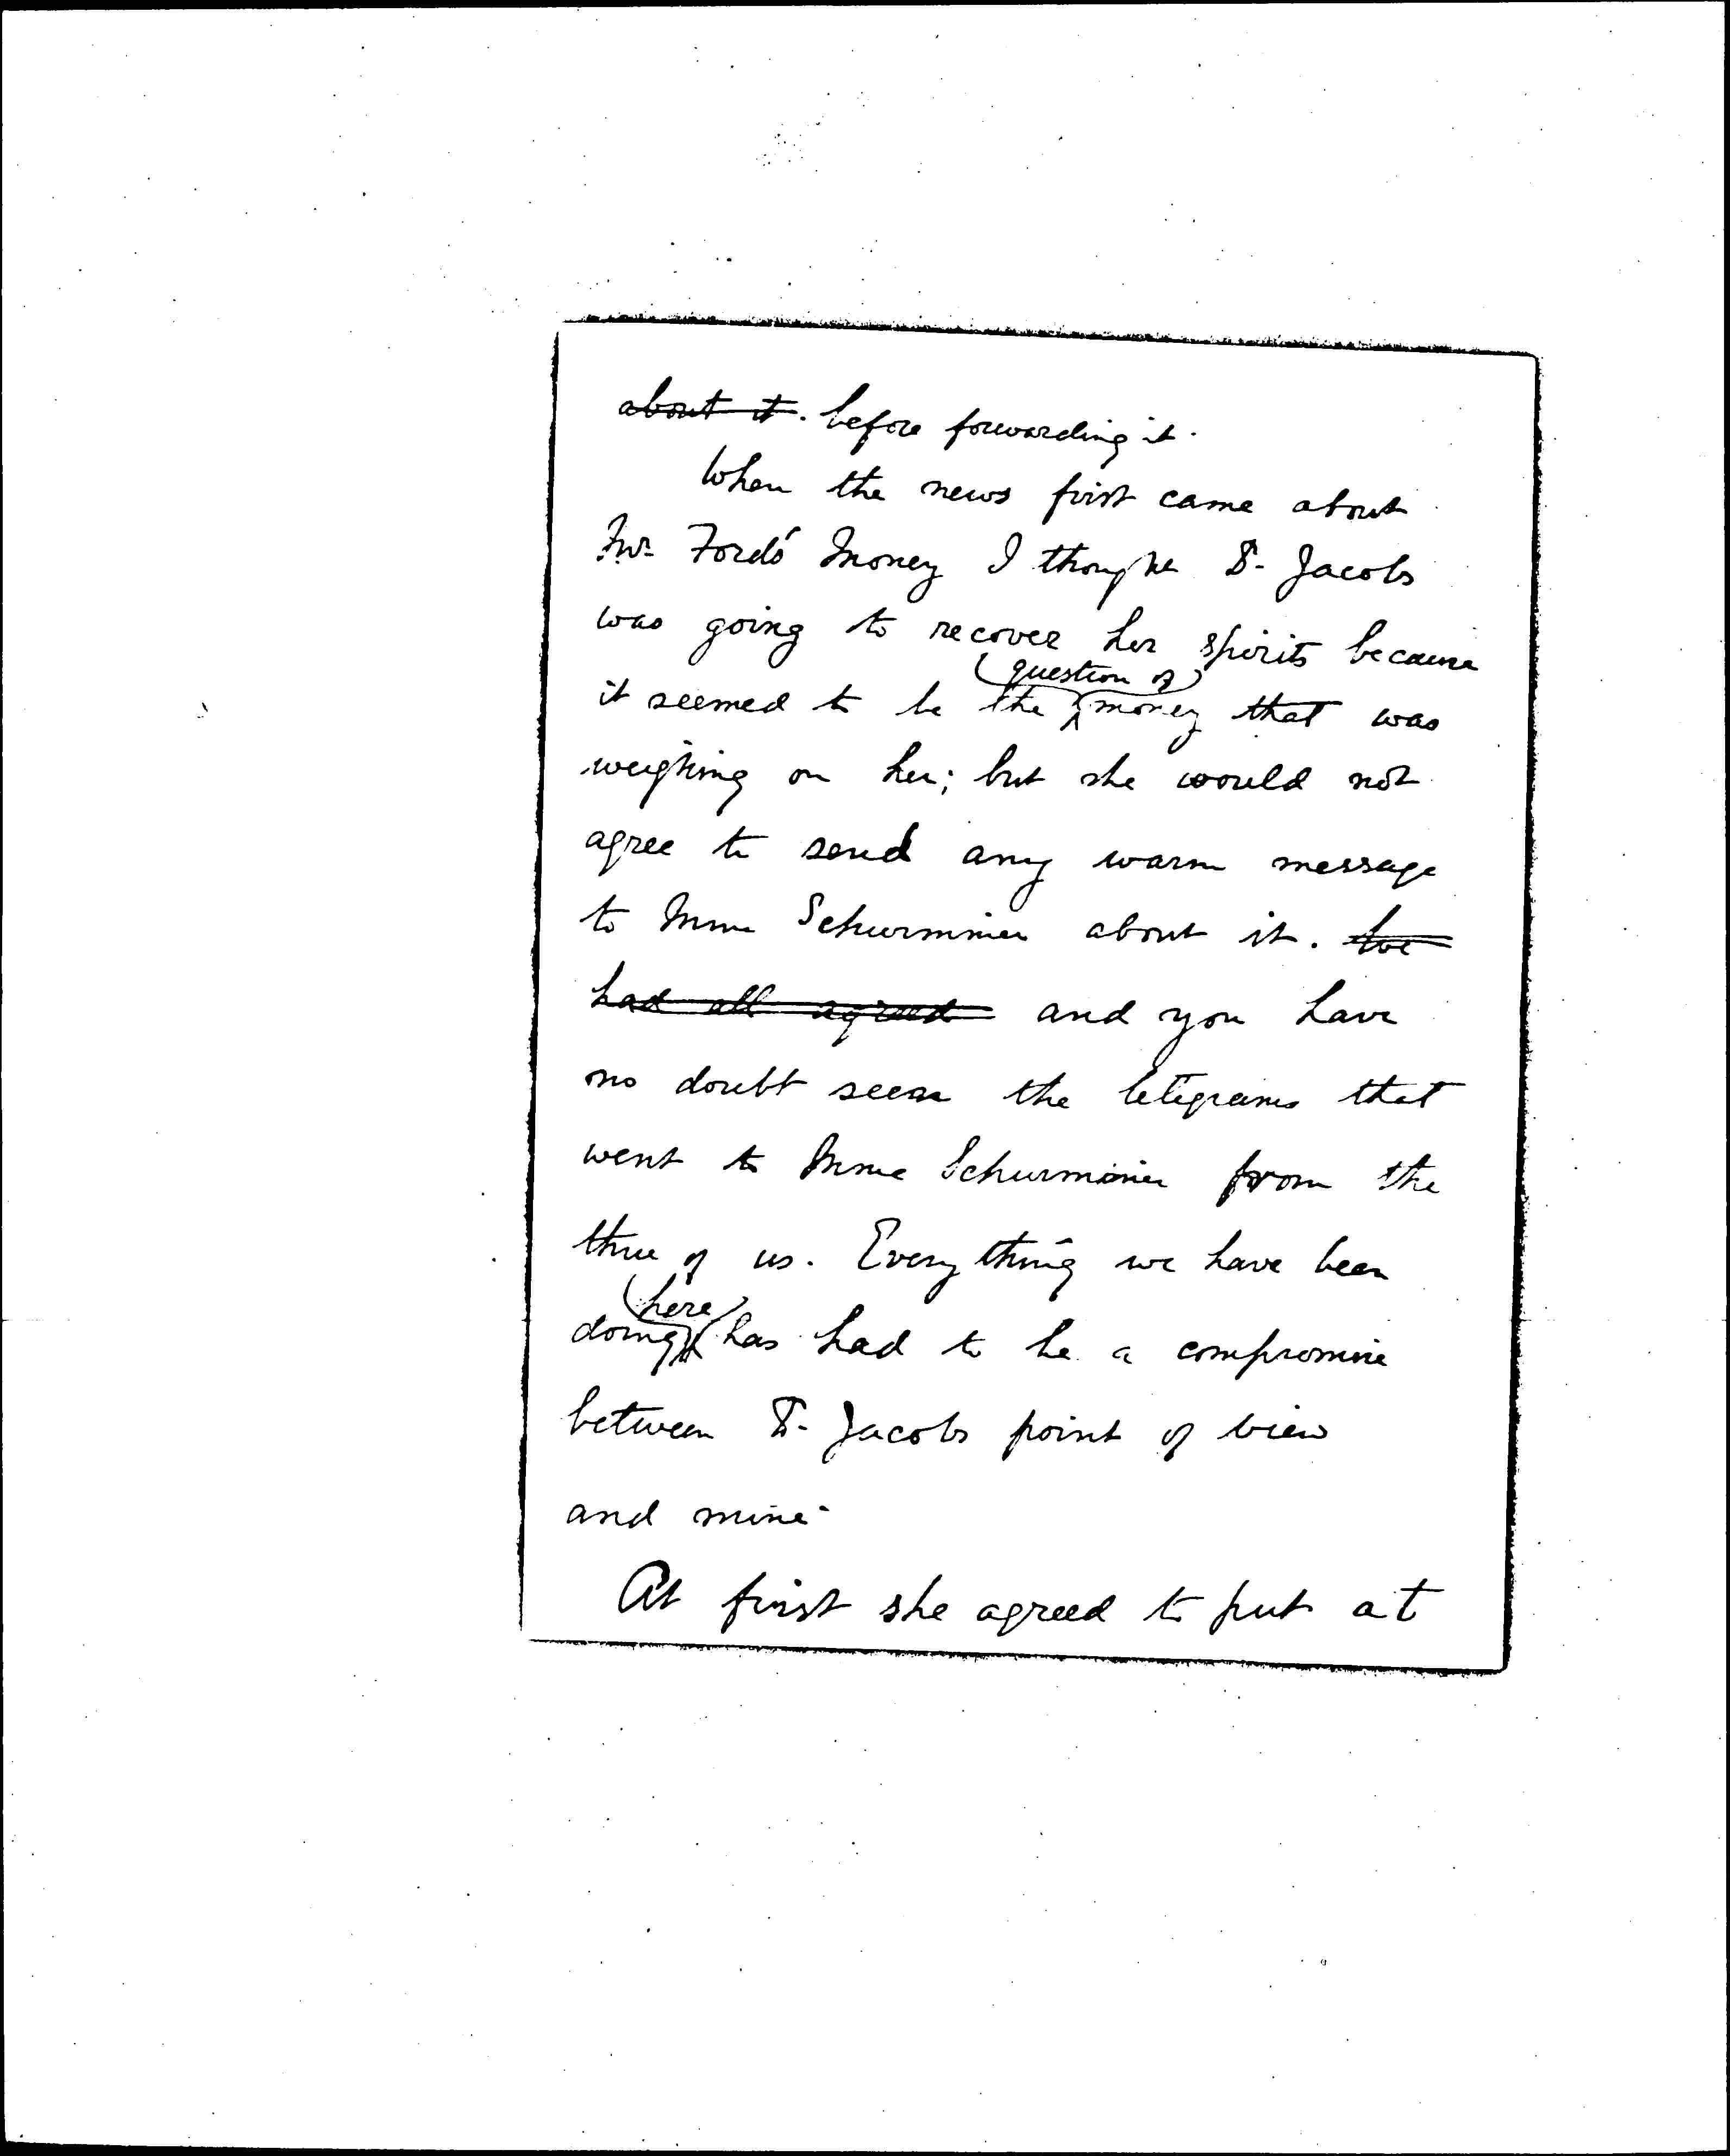 about it. before forwarding it.
When the news first came about
Mr. Ford's Money I thought Dr. Jacobs
was going to recover her spirits because
question of
it seemed to be the money that was
weighing on her; but she would not
agree to send any warm message
to Mme Schwimmer about it. We
had all agreed and you have
no doubt seen the telegrams that
went to Mme Schwimmer from the
three of us. Everything we have been
here
doing has had to be a compromise
between Dr. Jacobs point of view
and mine.
At first she agreed to put at